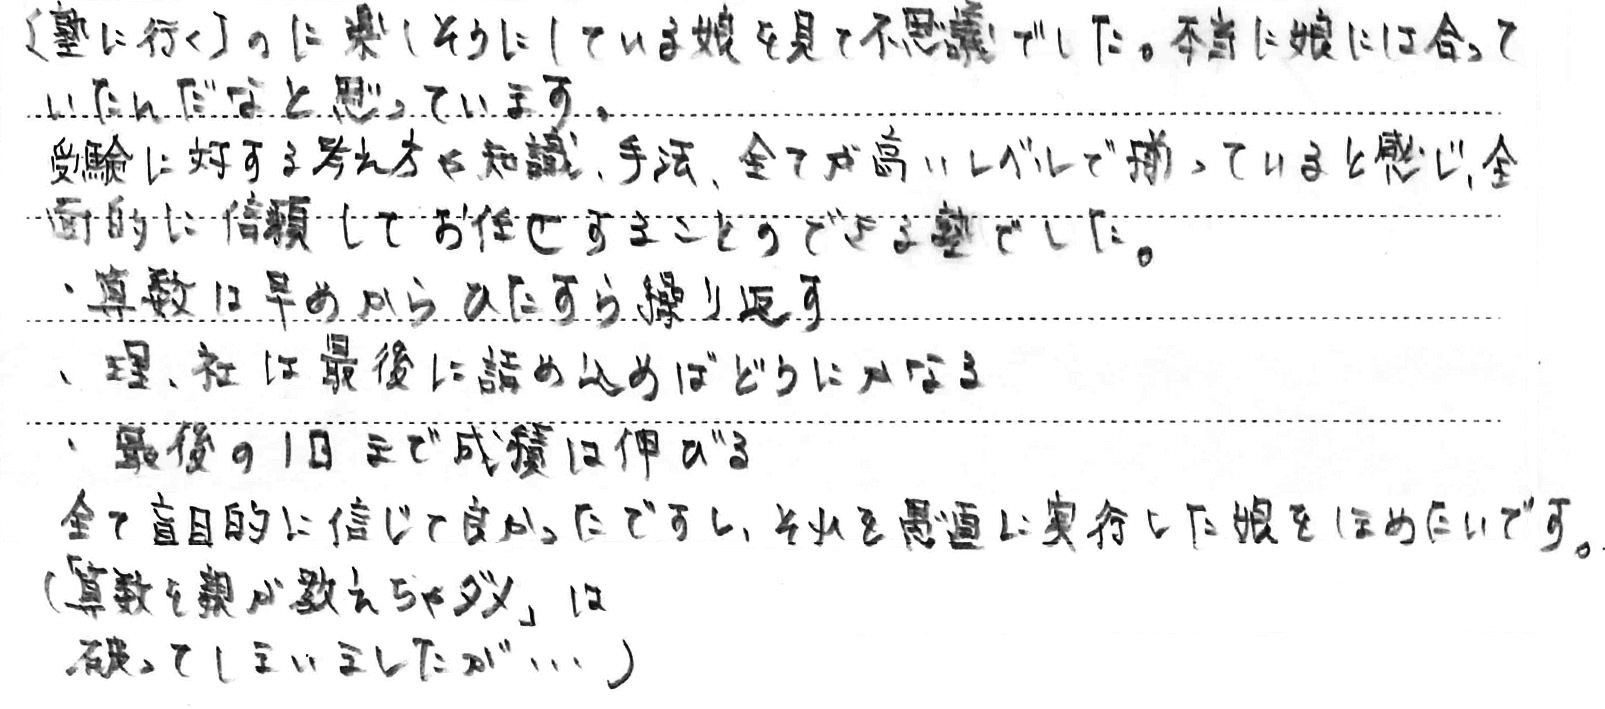 〔塾に行く〕のに楽しそうにしている娘を見て不思議でした。本当に娘には合って
いたんだなと思っています。
受験に対する考え方や知識、手法、全てが高いレベルで揃っていると感じ、全
面的に信頼してお任せすることのできる塾でした。
・算数は早めからひたすら繰り返す
・理、社は最後に詰め込めばどうにかなる
・最後の1日まで成績は伸びる
全て盲目的に信じて良かったですし、それを愚直に実行した娘をほめたいです。
(「算数を親が教えちゃダメ」は
破ってしまいましたが…)